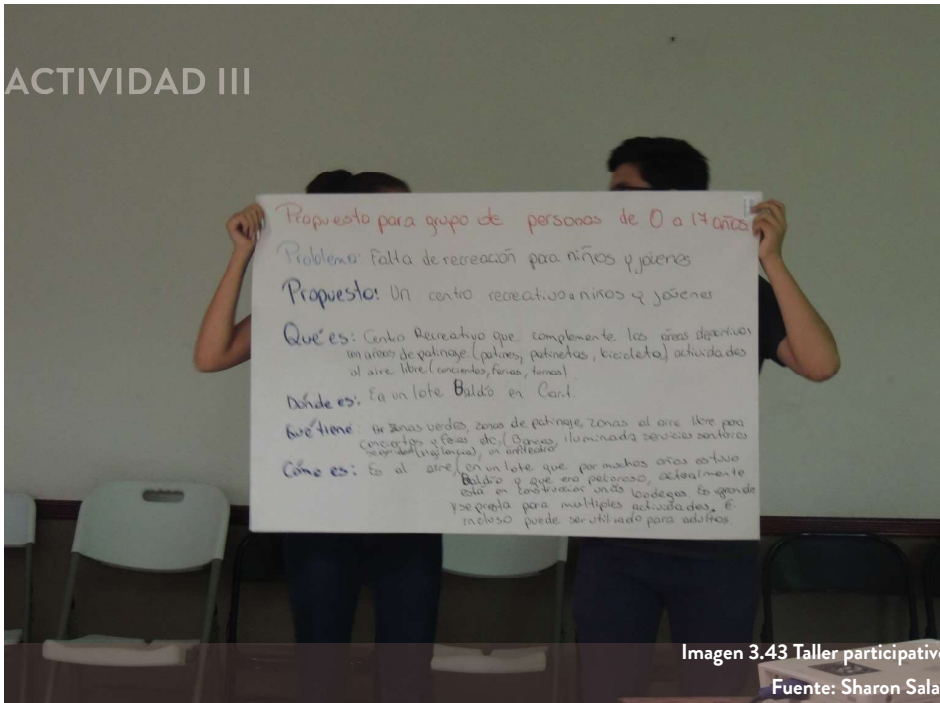 ACTIVIDAD III
Propuesta para grupo de personas de 0 a 17 años.
Problema: Falta de recreación para niños y jóvenes
Propuesta: Un centro recreativo a niños y jóvenes
Qué es: Centro Recreativo que complemente las áreas deportivas
con areas de patinaje (patines, patinetas, bicicleta) actividades
al aire libre (conciertos, ferias, turnos)
Dónde es: En un lote Baldío en
Qué tiene: zonas verdes, zonas de patinaje, zonas al aire libre para
conciertos y ferias etc, (Bancas, iluminada servicios sanitarios
(vigilancia), un anfiteatro
Cómo es: Es al aire, en un lote que por muchos años estuvo
Baldío y que era peligroso, actualmente
está en construcción unas bodegas. Es grande
y se presta para multiples actividades. E
incluso puede ser utilizado para adultos.
Imagen 3.43 Taller participativo
Fuente: Sharon Sala